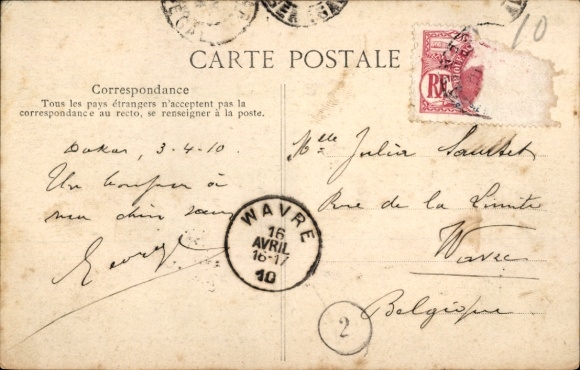 10
CARTE POSTALE
Correspondance
Tous les pays étrangers n'acceptent pas la
correspondance au recto, se renseigner à la poste.
RF
Dakar, 3-4-10.
Un bonjour à
ma chère sœur
Melle Julia
Rue de la Limite
Wavre
Belgique
WAVRE
16
AVRIL
16-17
10
2